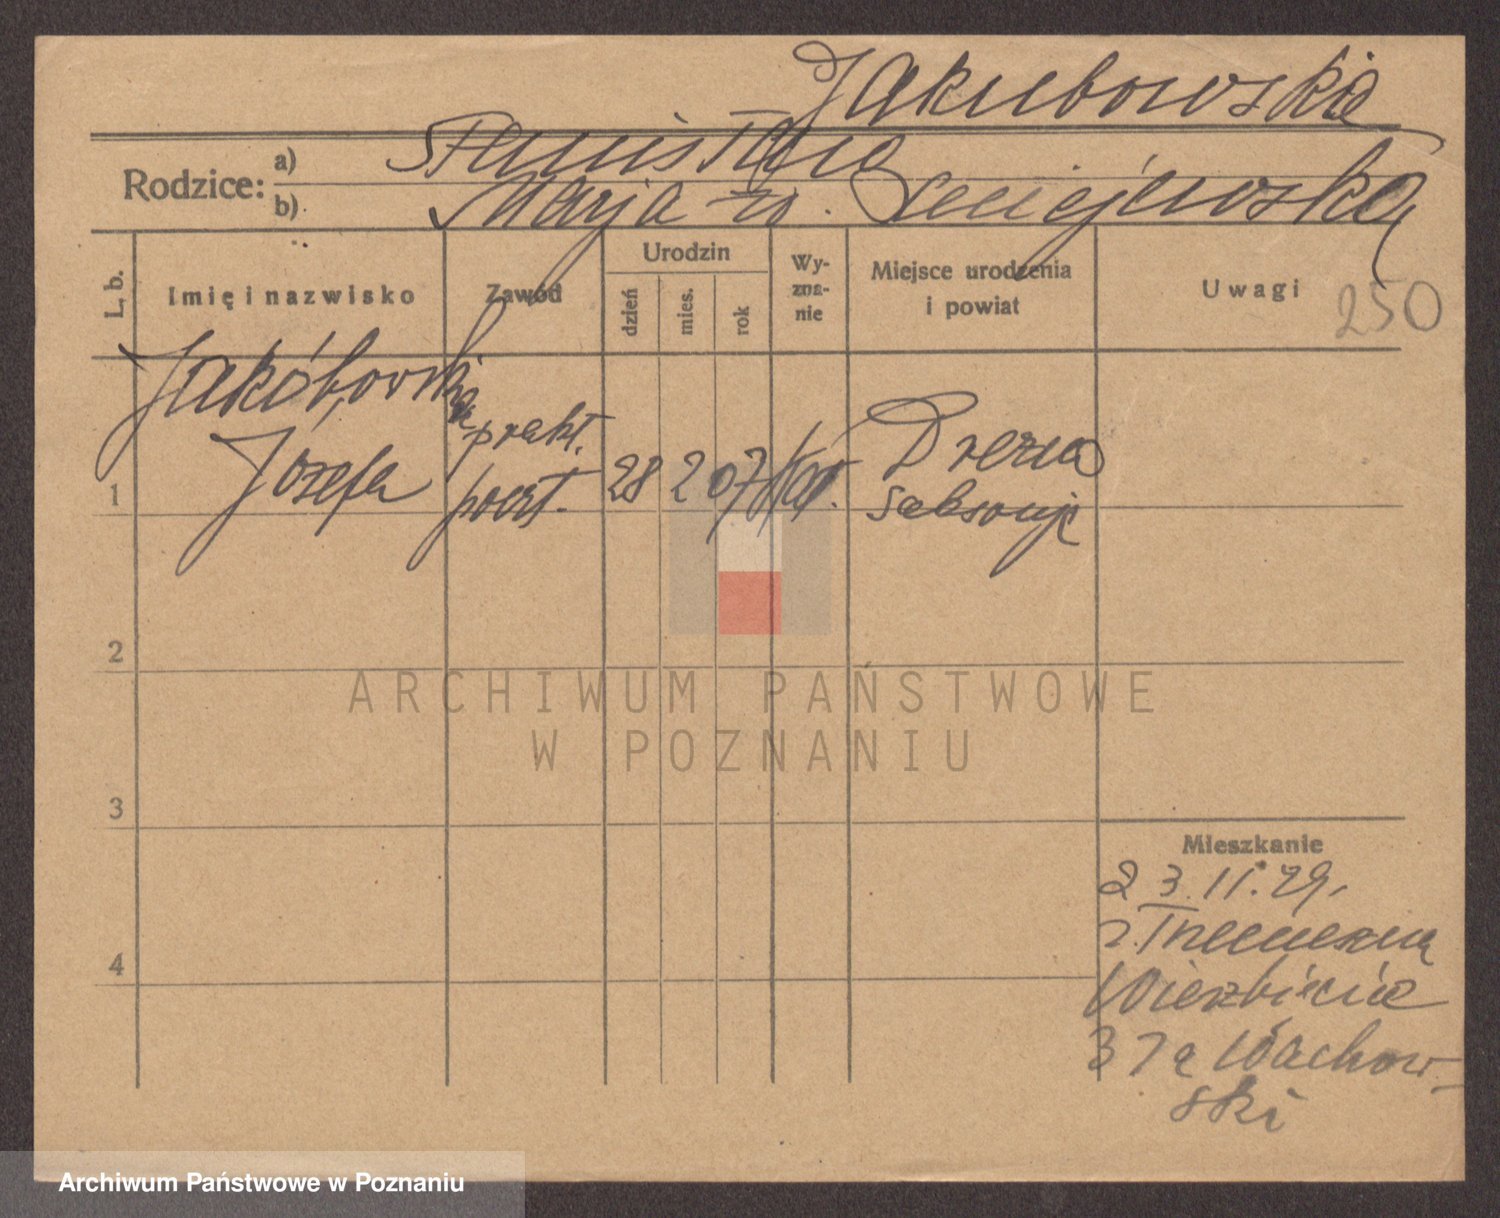 Jakubowska
Rodzice: a) Stanisława
b) Marja z.
L. b. Imię i nazwisko Zawód Urodzin dzień mies. rok Wy-zna-nie Miejsce urodzenia i powiat Uwagi 250
Jakóbowska
prakt.
1 Józefa poczt. 28 2 07 kat. Drezno
Saksonja
2
ARCHIWUM PAŃSTWOWE
W POZNANIU
3
Mieszkanie
23.11.29.
z Trzemeszna
4 Wierzbięcice
37a Wachow-
ski
Archiwum Państwowe w Poznaniu